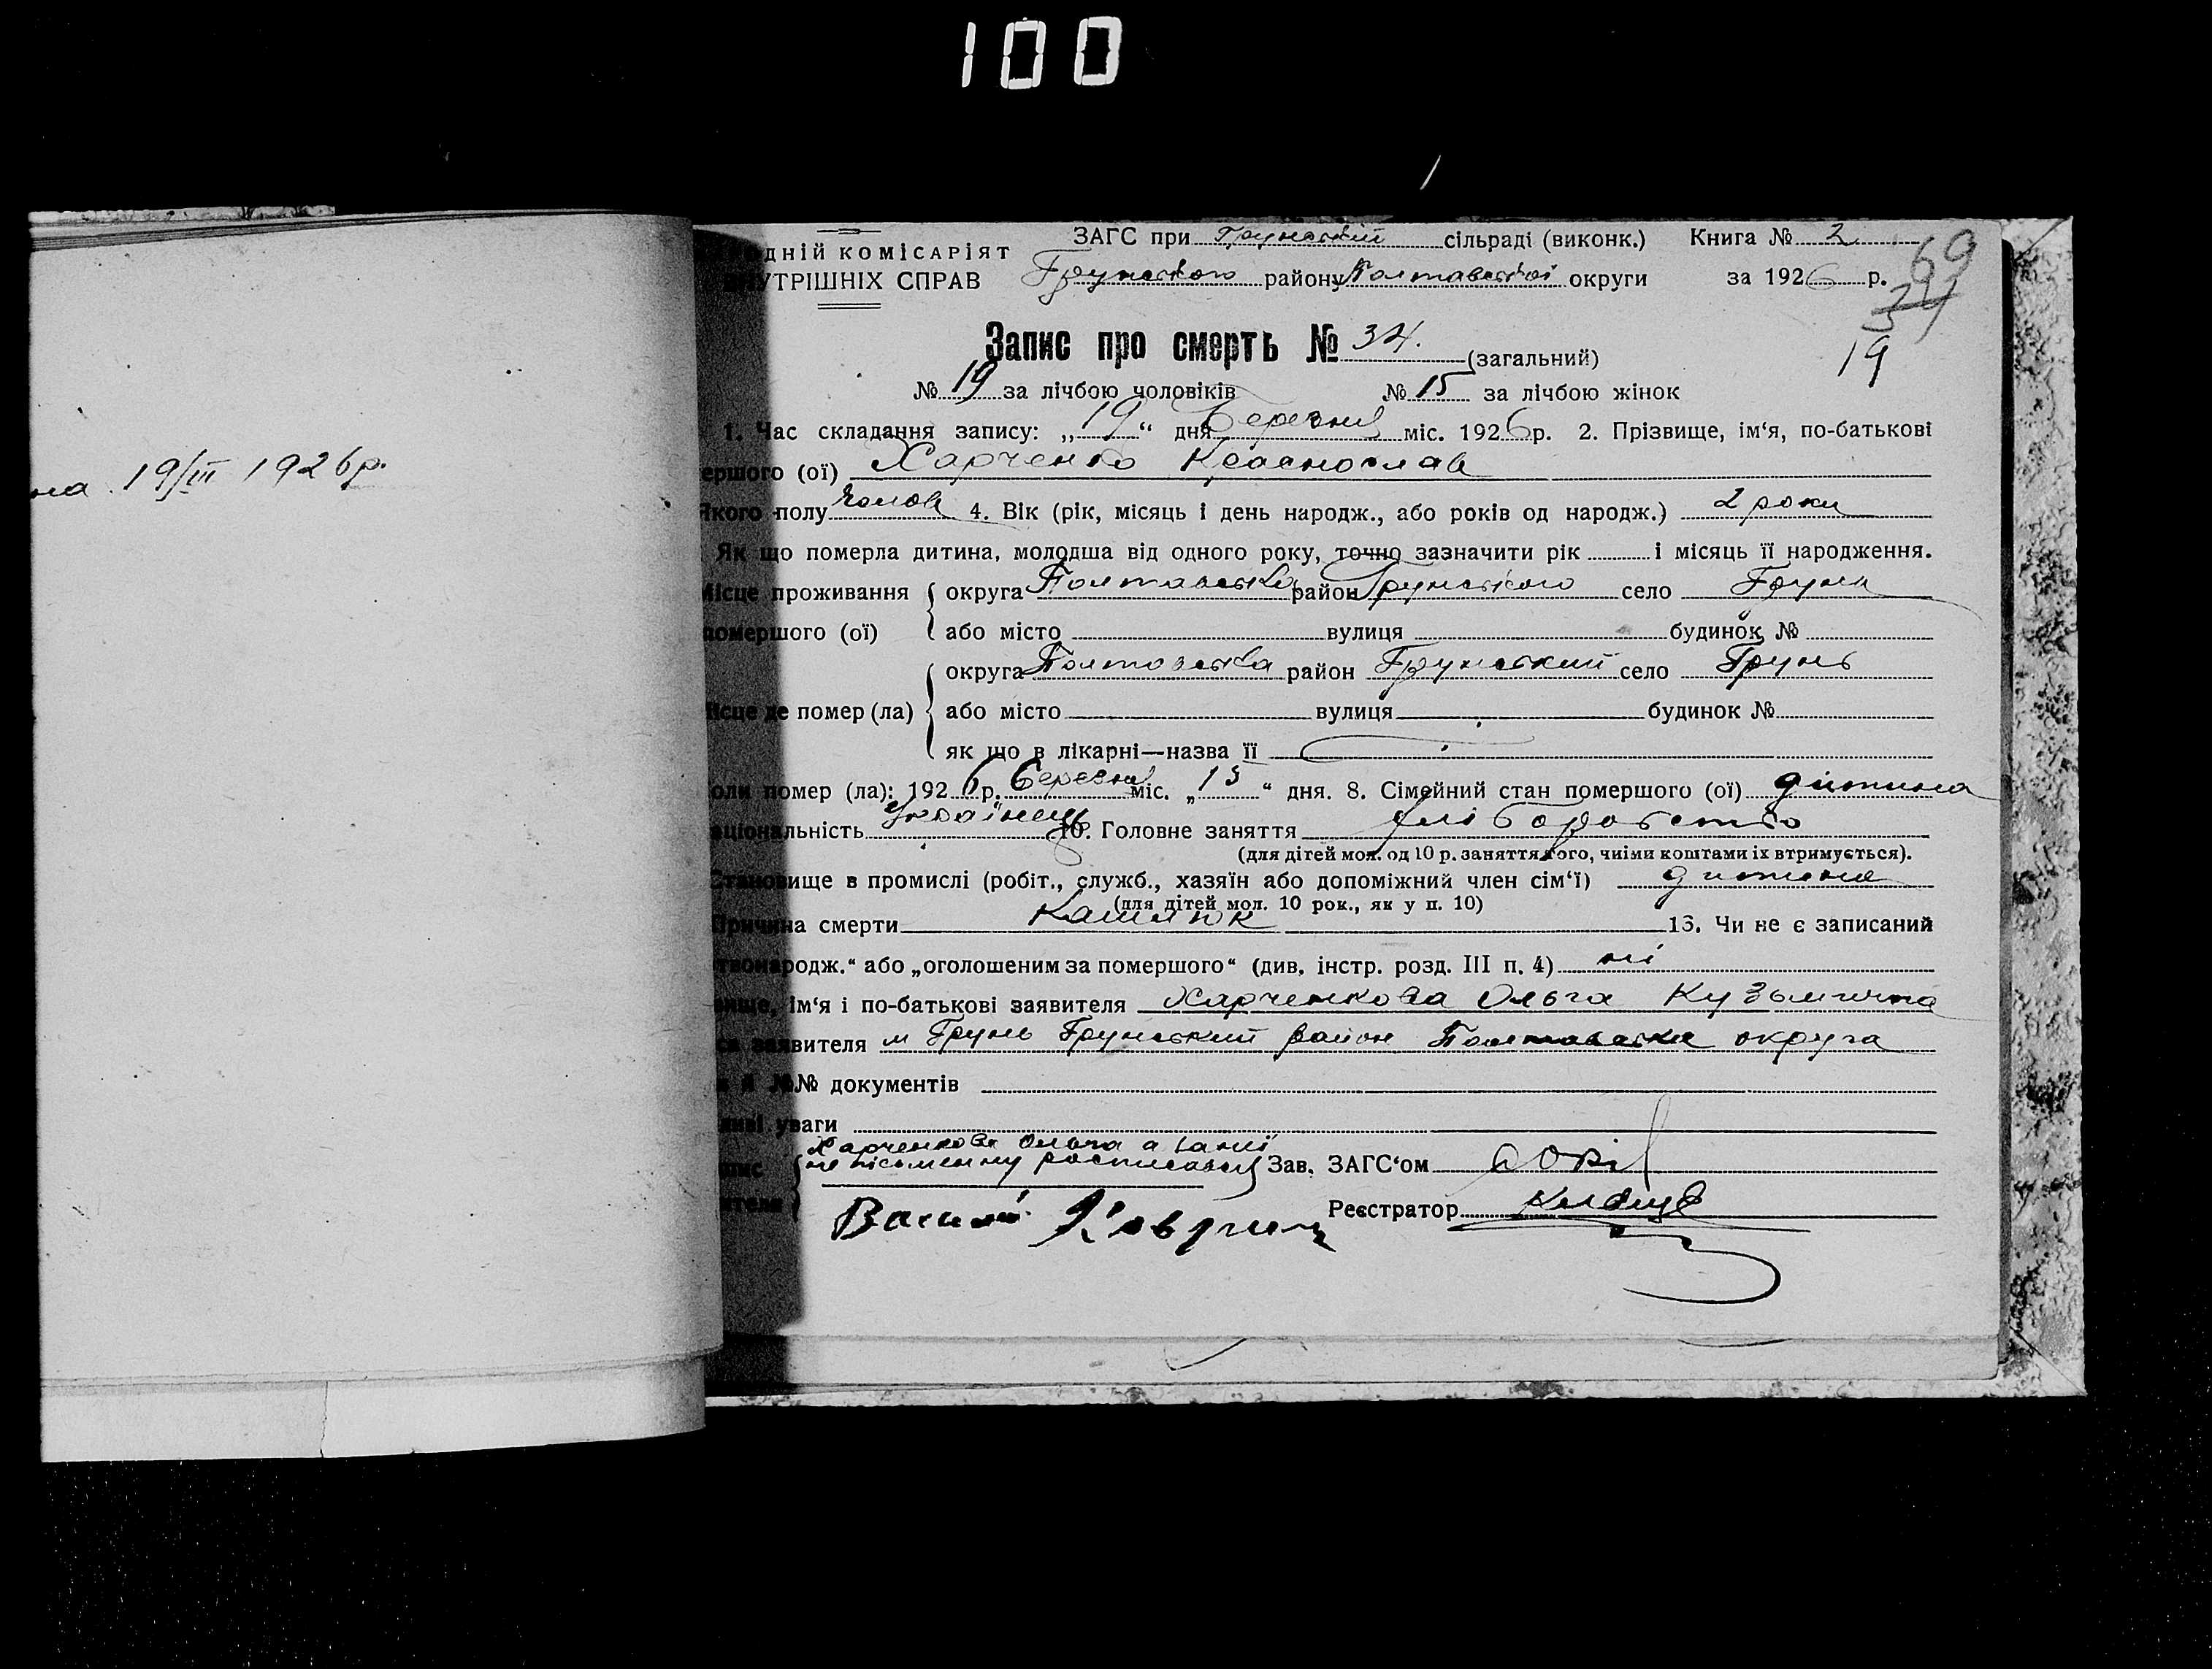 100
на 19/III 1926 р.
ЗАГС при Грунській сільраді (виконк.) Книга № 2
69
одній комісаріят
внутрішніх справ Грунського району Полтавської округи за 1926 р.
Запис про смерть № 34. (загальний)
19
№ 19 за лічбою чоловіків № 15 за лічбою жінок
1. Час складання запису: „19“ дня Березня міс. 1926 р. 2. Прізвище, ім‘я, по-батькові
ершого (ої) Харченко Краснослав
Якого полу чолов 4. Вік (рік, місяць і день народж., або років од народж.) 2 роки
Як що померла дитина, молодша від одного року, точно зазначити рік і місяць її народження.
Місце проживання округа Полтавська район Грунського село Грунь
помершого (ої) або місто вулиця будинок №
округа Полтавська район Грунський село Грунь
ісце де помер (ла) або місто вулиця будинок №
як що в лікарні—назва її
оли помер (ла): 1926 р. Березня міс. „15“ дня. 8. Сімейний стан помершого (ої) дитина
аціональність Українець 10. Головне заняття хліборобство
(для дітей мол. од 10 р. заняття того, чиїми коштами їх втримується).
Становище в промислі (робіт., служб., хазяїн або допоміжний член сім‘ї) дитина
(для дітей мол. 10 рок., як у п. 10)
Причина смерти Кашлюк 13. Чи не є записаний
твонародж.“ або „оголошеним за помершого“ (див. інстр. розд. III п. 4) ні
вище, ім‘я і по-батькові заявителя Харченкова Ольга Кузьмична
са заявителя м Грунь Грунський район Полтавська округа
и й №№ документів
ливі уваги
Харченкова Ольга а за неї
пис неписьменну росписався Зав. ЗАГС‘ом
ителя Василь Реєстратор